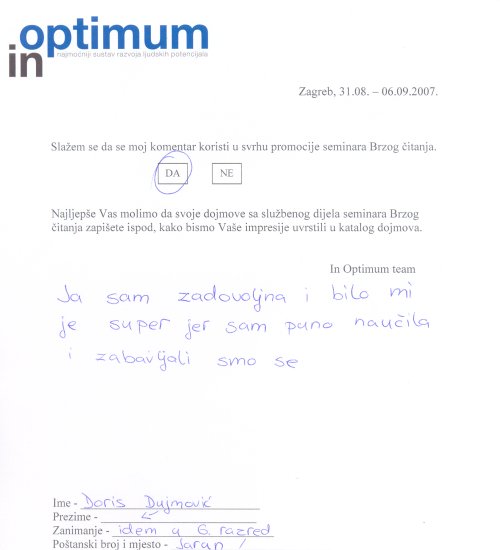 optimum
in
najmoćniji sustav razvoja ljudskih potencijala
Zagreb, 31.08. – 06.09.2007.
Slažem se da se moj komentar koristi u svrhu promocije seminara Brzog čitanja.
DA NE
Najljepše Vas molimo da svoje dojmove sa službenog dijela seminara Brzog
čitanja zapišete ispod, kako bismo Vaše impresije uvrstili u katalog dojmova.
In Optimum team
Ja sam zadovoljna i bilo mi
je super jer sam puno naučila
i zabavljali smo se
Ime - Doris Dujmović
Prezime -
Zanimanje - idem u 6. razred
Poštanski broj i mjesto -